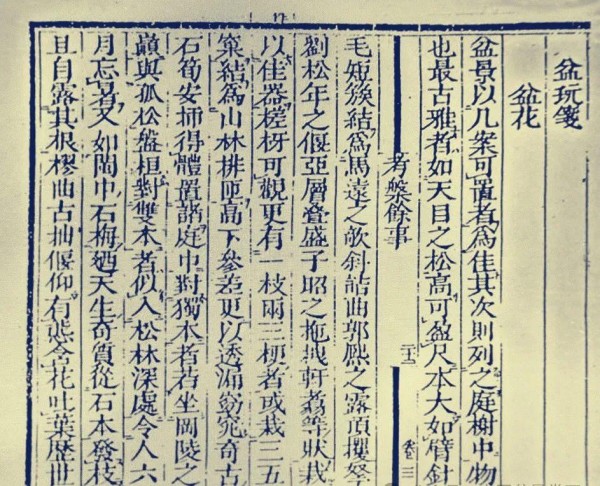 盆玩箋
盆花
盆景以几案可置者為佳其次則列之庭榭中物
也最古雅者如天目之松高可盈尺本大如臂針
考槃餘事
卷三
毛短簇結為馬遠之欹斜詰曲郭熙之露頂攫拏
劉松年之偃亞層疊盛子昭之拖拽軒翥等狀栽
以佳器槎枒可觀更有一枝兩三梗者或栽三五
窠結為山林排匝高下參差更以透漏窈窕奇古
石筍安插得體置諸庭中對獨本者若坐岡陵之
巔與孤松盤桓對雙本者似入松林深處令人六
月忘暑又如閩中石梅廼天生奇質從石本發枝
且自露其根樛曲古拙偃仰有態含花吐葉歷世